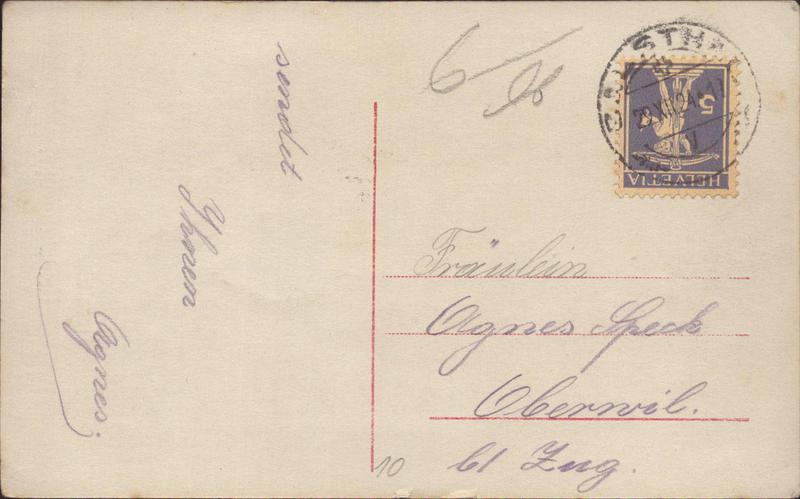 sendet
Ihnen
Agnes.
6/96
HELVETIA
5
Fräulein
Agnes Speck
Oberwil.
b/ Zug.
10